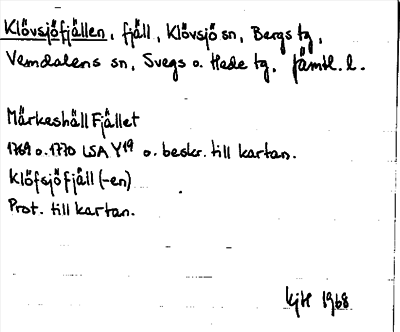 Klövsjöfjällen, fjäll, Klövsjö sn, Bergs tg,
Vemdalens sn, Svegs o. Hede tg, Jämtl. l.
Märkeshäll Fjället
1769 o. 1770 LSA Y19 o. beskr. till kartan.
Klöfsjöfjäll (-en)
Prot. till kartan.
KjH 1968